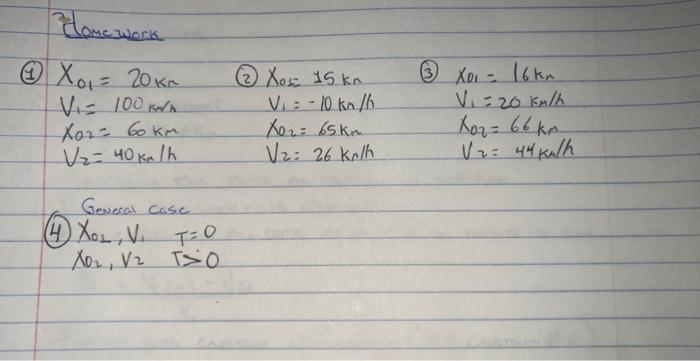 Homework
① X01 = 20 km
V1 = 100 km/h
X02 = 60 km
V2 = 40 km/h
② X01= 15 km
V1 = -10 km/h
X02 = 65 km
V2 = 26 km/h
③ X01 = 16 km
V1 = 20 km/h
X02 = 66 km
V2 = 44 km/h
General case
④ X01, V1 T=0
X02, V2 T>0